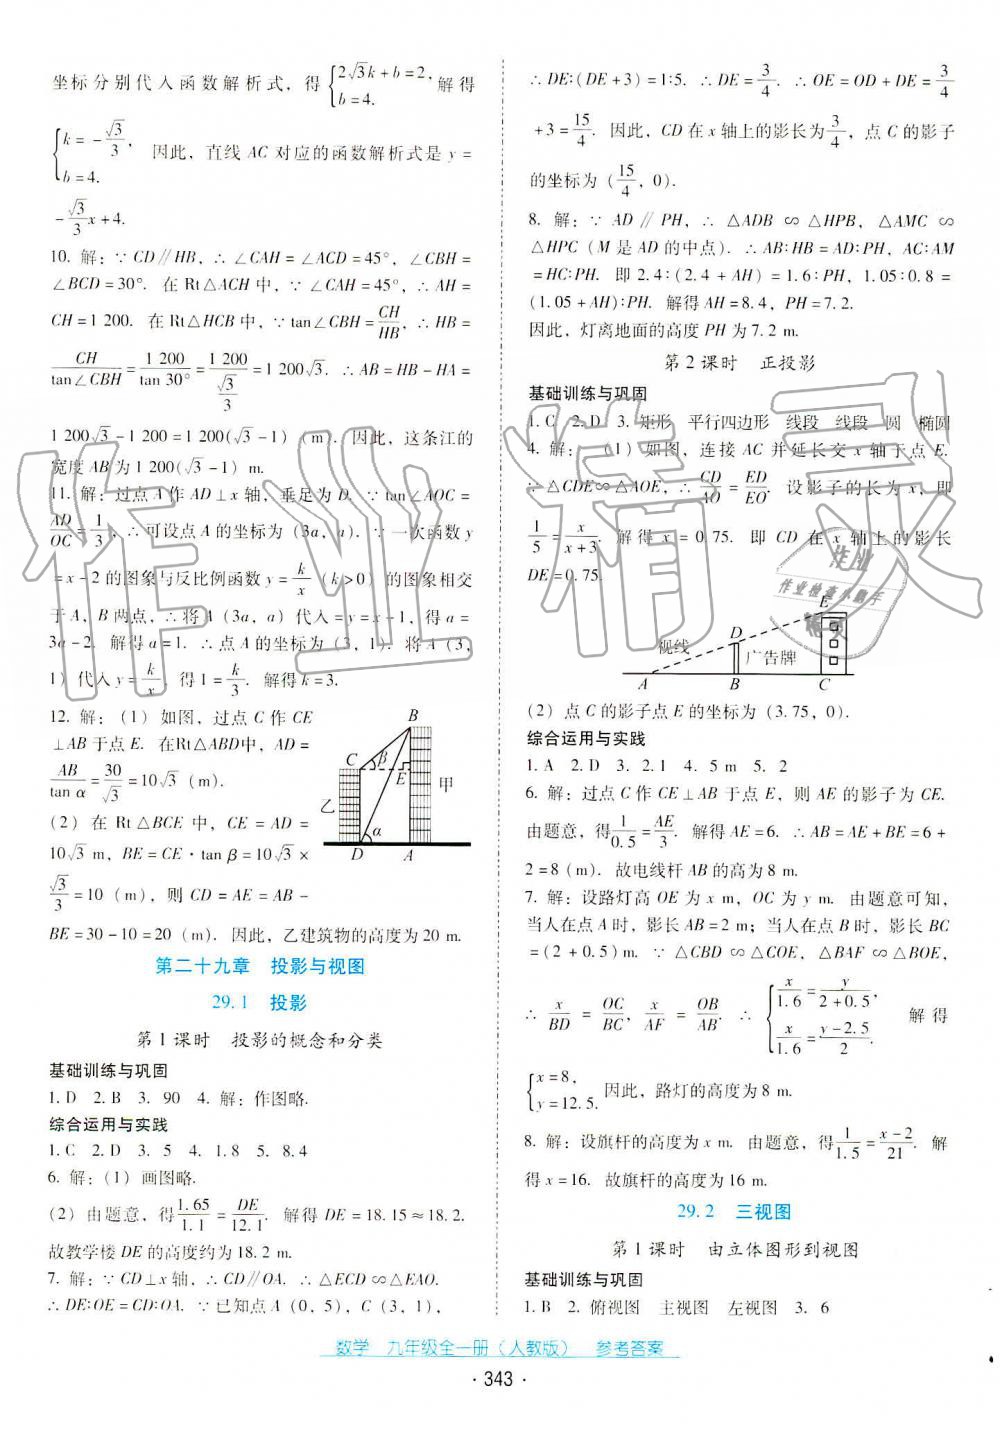 坐标分别代入函数解析式，得{2√3k+b=2, b=4. 解得
{k=-√3/3, b=4. 因此，直线 AC 对应的函数解析式是 y=
-√3/3 x+4.
10. 解：∵ CD∥HB，∴ ∠CAH=∠ACD=45°，∠CBH=
∠BCD=30°. 在 Rt△ACH 中，∵ ∠CAH=45°，∴ AH=
CH=1 200. 在 Rt△HCB 中，∵ tan∠CBH=CH/HB，∴ HB=
CH/tan∠CBH=1 200/tan 30°=1 200/(√3/3)=1 200√3. ∴ AB=HB-HA=
1 200√3-1 200=1 200(√3-1)（m）. 因此，这条江的
宽度 AB 为 1 200(√3-1) m.
11. 解：过点 A 作 AD⊥x 轴，垂足为 D. ∵ tan∠AOC=
AD/OC=1/3，∴ 可设点 A 的坐标为（3a，a）. ∵ 一次函数 y
=x-2 的图象与反比例函数 y=k/x（k>0）的图象相交
于 A，B 两点，∴ 将 A（3a，a）代入 =x-1，得 a=
3a-2. 解得 a=1. ∴ 点 A 的坐标为（3，1）. 将 A（3，
1）代入 y=k/x，得 1=k/3. 解得 k=3.
12. 解：（1）如图，过点 C 作 CE
⊥AB 于点 E. 在Rt△ABD中，AD=
AB/tan α=30/√3=10√3（m）.
（2）在 Rt△BCE 中，CE=AD=
10√3 m，BE=CE·tan β=10√3×
√3/3=10（m），则 CD=AE=AB-
BE=30-10=20（m）. 因此，乙建筑物的高度为 20 m.
B
C
β
E
乙
甲
α
D
A
第二十九章 投影与视图
29.1 投影
第 1 课时 投影的概念和分类
基础训练与巩固
1. D 2. B 3. 90 4. 解：作图略.
综合运用与实践
1. C 2. D 3. 5 4. 1.8 5. 8.4
6. 解：（1）画图略.
（2）由题意，得1.65/1.1=DE/12.1. 解得 DE=18.15≈18.2.
故教学楼 DE 的高度约为 18.2 m.
7. 解：∵ CD⊥x 轴，∴ CD∥OA. ∴ △ECD∽△EAO.
∴ DE∶OE=CD∶OA. ∵ 已知点 A（0，5），C（3，1），
∴ DE∶(DE+3)=1∶5. ∴ DE=3/4. ∴ OE=OD+DE=3/4
+3=15/4. 因此，CD 在 x 轴上的影长为3/4，点 C 的影子
的坐标为（15/4，0）.
8. 解：∵ AD∥PH，∴ △ADB∽△HPB，△AMC∽
△HPC（M 是 AD 的中点）. ∴ AB∶HB=AD∶PH，AC∶AM
=HC∶PH. 即 2.4∶(2.4+AH)=1.6∶PH，1.05∶0.8=
(1.05+AH)∶PH. 解得 AH=8.4，PH=7.2.
因此，灯离地面的高度 PH 为 7.2 m.
第 2 课时 正投影
基础训练与巩固
1. C 2. D 3. 矩形 平行四边形 线段 线段 圆 椭圆
4. 解：（1）如图，连接 AC 并延长交 x 轴于点 E.
∵ △CDE∽△AOE，∴ CD/AO=ED/EO. 设影子的长为 x，即
1/5=x/(x+3). 解得 x=0.75. 即 CD 在 x 轴上的影长
DE=0.75.
视线
D
E
广告牌
A
B
C
（2）点 C 的影子点 E 的坐标为（3.75，0）.
综合运用与实践
1. A 2. D 3. 2.1 4. 5 m 5. 2
6. 解：过点 C 作 CE⊥AB 于点 E，则 AE 的影子为 CE.
由题意，得1/0.5=AE/3. 解得 AE=6. ∴ AB=AE+BE=6+
2=8（m）. 故电线杆 AB 的高为 8 m.
7. 解：设路灯高 OE 为 x m，OC 为 y m. 由题意可知，
当人在点 A 时，影长 AB=2 m；当人在点 B 时，影长 BC
=（2+0.5）m. ∵ △CBD∽△COE，△BAF∽△BOE，
∴ x/BD=OC/BC，x/AF=OB/AB. ∴ {x/1.6=y/(2+0.5), x/1.6=(y-2.5)/2. 解得
{x=8, y=12.5. 因此，路灯的高度为 8 m.
8. 解：设旗杆的高度为 x m. 由题意，得1/1.5=(x-2)/21. 解
得 x=16. 故旗杆的高度为 16 m.
29.2 三视图
第 1 课时 由立体图形到视图
基础训练与巩固
1. B 2. 俯视图 主视图 左视图 3. 6
数学 九年级全一册（人教版） 参考答案
· 343 ·
作业精灵
作业
作业检查小助手
精灵